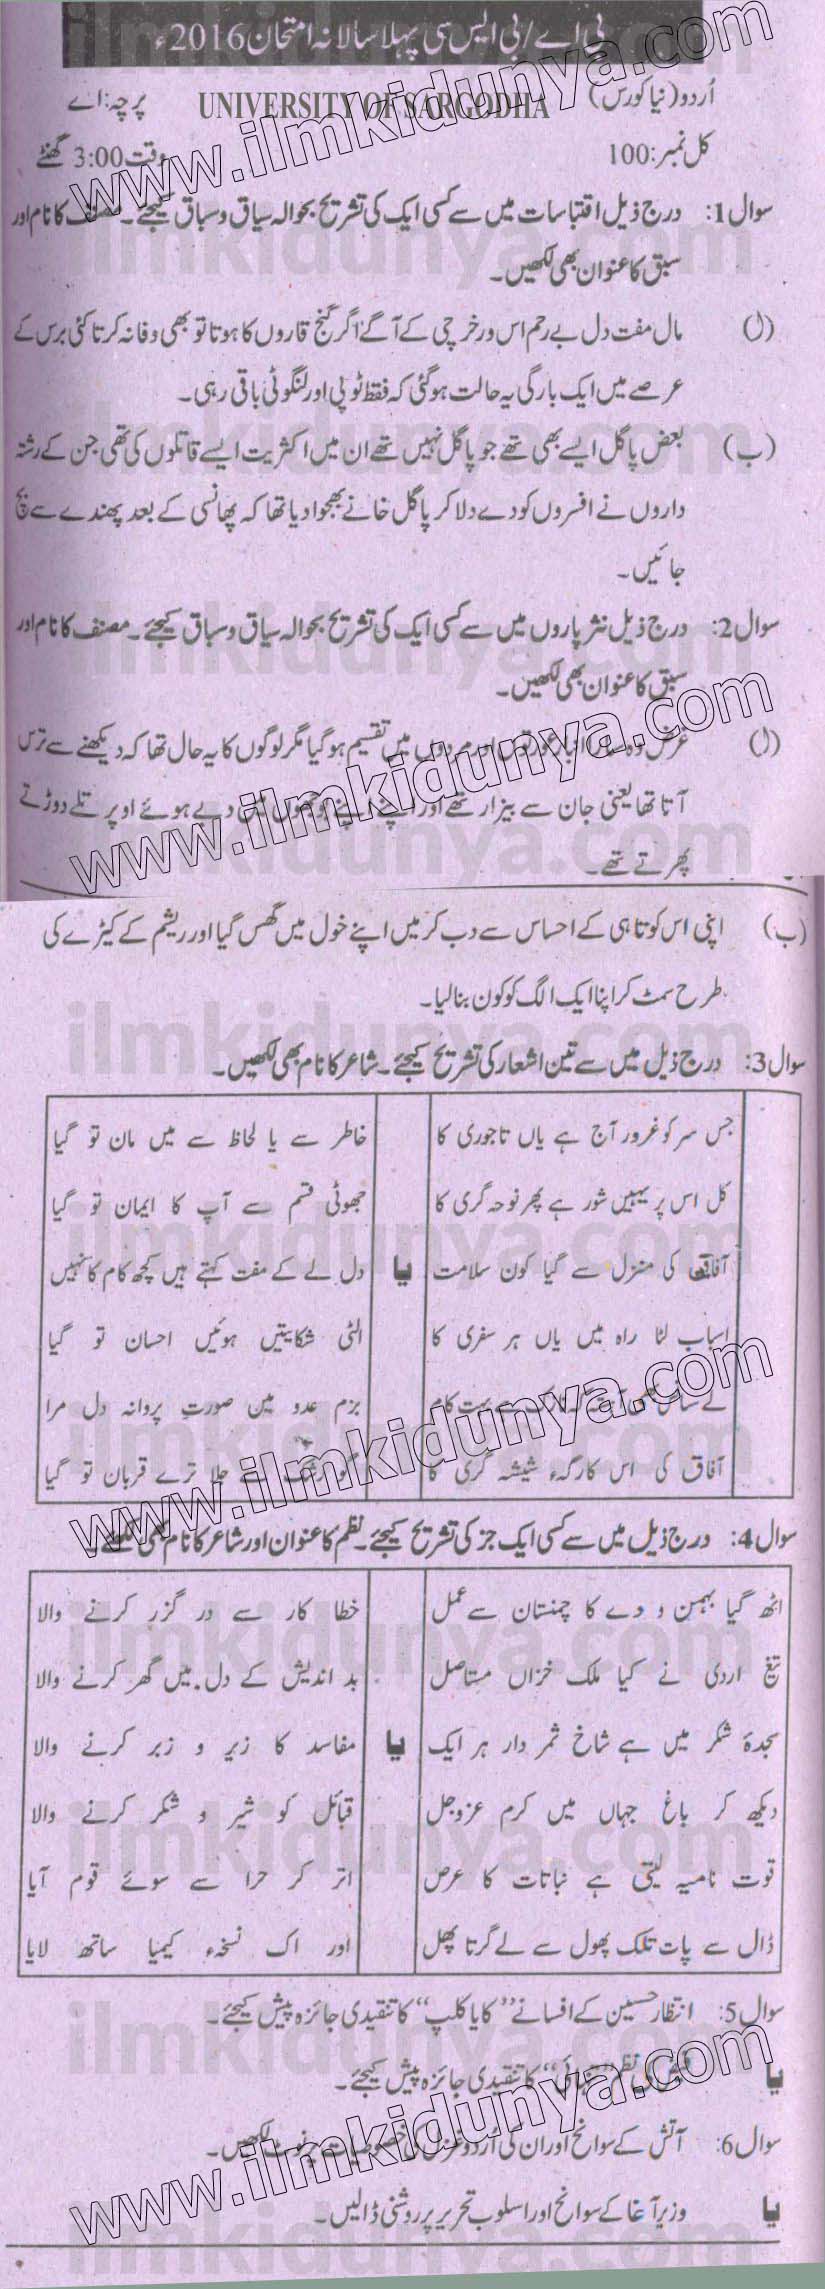 بی اے/بی ایس سی پہلا سالانہ امتحان 2016ء
اُردو (نیا کورس) UNIVERSITY OF SARGODHA پرچہ: اے
کل نمبر: 100 وقت 3:00 گھنٹے
سوال 1: درج ذیل اقتباسات میں سے کسی ایک کی تشریح بحوالہ سیاق و سباق کیجئے۔ مصنف کا نام اور
سبق کا عنوان بھی لکھیں۔
(ا) مال مفت دل بے رحم اس ور خرچی کے آگے اگر گنج قاروں کا ہوتا تو بھی وفا نہ کرتا کئی برس کے
عرصے میں ایک بارگی یہ حالت ہو گئی کہ فقط ٹوپی اور لنگوٹی باقی رہی۔
(ب) بعض پاگل ایسے بھی تھے جو پاگل نہیں تھے ان میں اکثریت ایسے قاتلوں کی تھی جن کے رشتہ
داروں نے افسروں کو دے دلا کر پاگل خانے بھجوا دیا تھا کہ پھانسی کے بعد پھندے سے بچ
جائیں۔
سوال 2: درج ذیل نثر پاروں میں سے کسی ایک کی تشریح بحوالہ سیاق و سباق کیجئے۔ مصنف کا نام اور
سبق کا عنوان بھی لکھیں۔
(ا) غرض وہ انبار عورتوں اور مردوں میں تقسیم ہو گیا مگر لوگوں کا یہ حال تھا کہ دیکھنے سے ترس
آتا تھا یعنی جان سے بیزار تھے اور اپنے اپنے بوجھوں میں دبے ہوئے اوپر تلے دوڑتے
پھرتے تھے۔
(ب) اپنی اس کوتاہی کے احساس سے دب کر میں اپنے خول میں گھس گیا اور ریشم کے کیڑے کی
طرح سمٹ کر اپنا ایک الگ کوکون بنا لیا۔
سوال 3: درج ذیل میں سے تین اشعار کی تشریح کیجئے۔ شاعر کا نام بھی لکھیں۔
جس سر کو غرور آج ہے یاں تاجوری کا
کل اس پر یہیں شور ہے پھر نوحہ گری کا
آفاق کی منزل سے گیا کون سلامت
اسباب لٹا راہ میں یاں ہر سفری کا
لے سانس بھی آہستہ کہ نازک ہے بہت کام
آفاق کی اس کارگہء شیشہ گری کا
یا
خاطر سے یا لحاظ سے میں مان تو گیا
جھوٹی قسم سے آپ کا ایمان تو گیا
دل لے کے مفت کہتے ہیں کچھ کام کا نہیں
الٹی شکایتیں ہوئیں احسان تو گیا
بزم عدو میں صورتِ پروانہ دل مرا
گو رشک سے جلا ترے قربان تو گیا
سوال 4: درج ذیل میں سے کسی ایک جز کی تشریح کیجئے۔ نظم کا عنوان اور شاعر کا نام بھی لکھئے۔
اٹھ گیا بہمن و دے کا چمنستان سے عمل
تیغ اردی نے کیا ملک خزاں مستاصل
سجدۂ شکر میں ہے شاخ ثمر دار ہر ایک
دیکھ کر باغ جہاں میں کرم عزوجل
قوت نامیہ لیتی ہے نباتات کا عرض
ڈال سے پات تلک پھول سے لے کرتا پھل
یا
خطا کار سے در گزر کرنے والا
بد اندیش کے دل میں گھر کرنے والا
مفاسد کا زیر و زبر کرنے والا
قبائل کو شیر و شکر کرنے والا
اتر کر حرا سے سوئے قوم آیا
اور اک نسخۂ کیمیا ساتھ لایا
سوال 5: انتظار حسین کے افسانے "کایا کلپ" کا تنقیدی جائزہ پیش کیجئے۔
یا فیض کی نظم "تنہائی" کا تنقیدی جائزہ پیش کیجئے۔
سوال 6: آتش کے سوانح اور ان کی اُردو غزل کی خصوصیات پر نوٹ لکھیں۔
یا وزیر آغا کے سوانح اور اسلوب تحریر پر روشنی ڈالیں۔
www.ilmkidunya.com
www.ilmkidunya.com
www.ilmkidunya.com
www.ilmkidunya.com